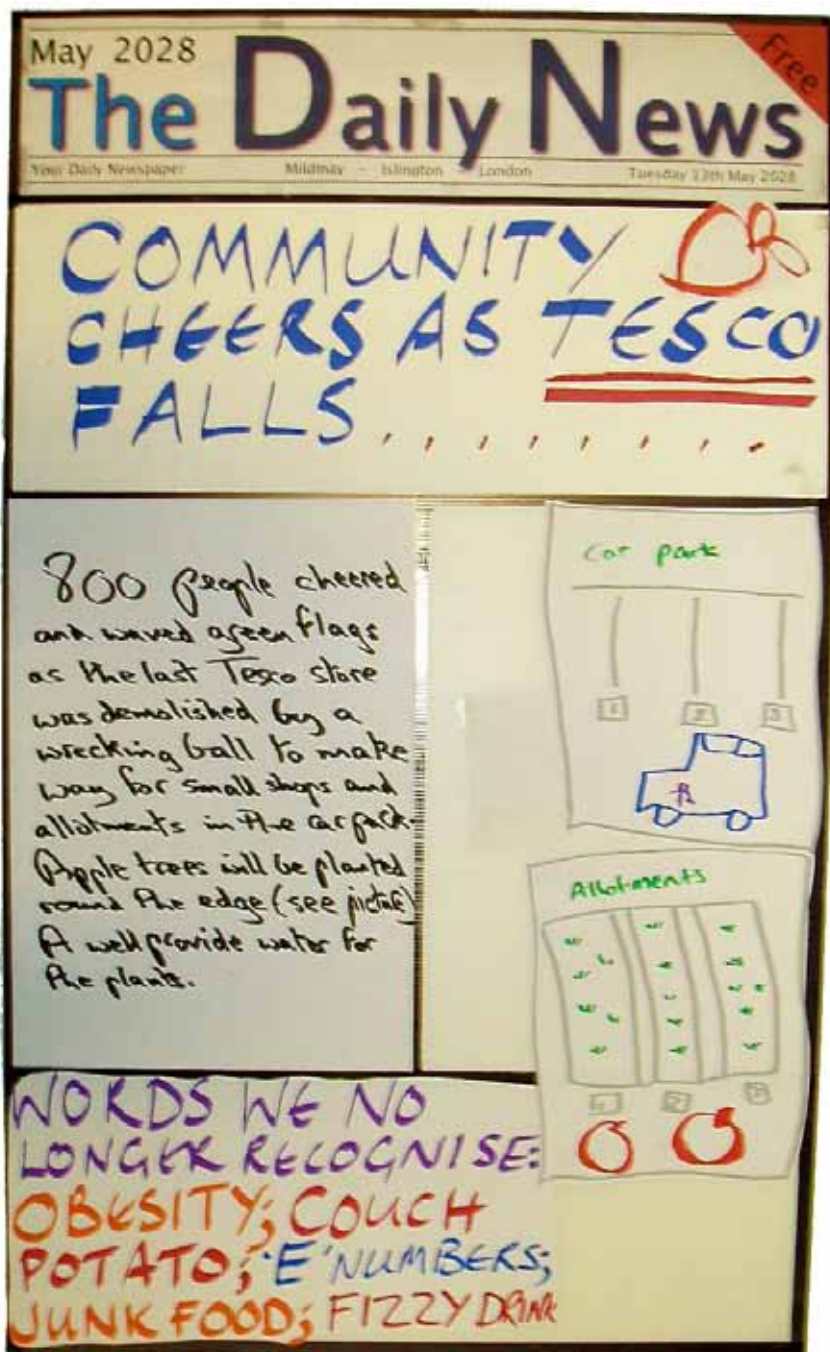 May 2028
Free
The Daily News
Your Daily Newspaper Mildmay - Islington - London Tuesday 13th May 2028
COMMUNITY
CHEERS AS TESCO
FALLS.........
800 people cheered
and waved green flags
as the last Tesco store
was demolished by a
wrecking ball to make
way for small shops and
allotments in the car park.
Apple trees will be planted
round the edge (see picture)
A well provide water for
the plants.
Car park
1 2 3
Allotments
1 2 3
WORDS WE NO
LONGER RECOGNISE:
OBESITY; COUCH
POTATO; 'E' NUMBERS;
JUNK FOOD; FIZZY DRINK